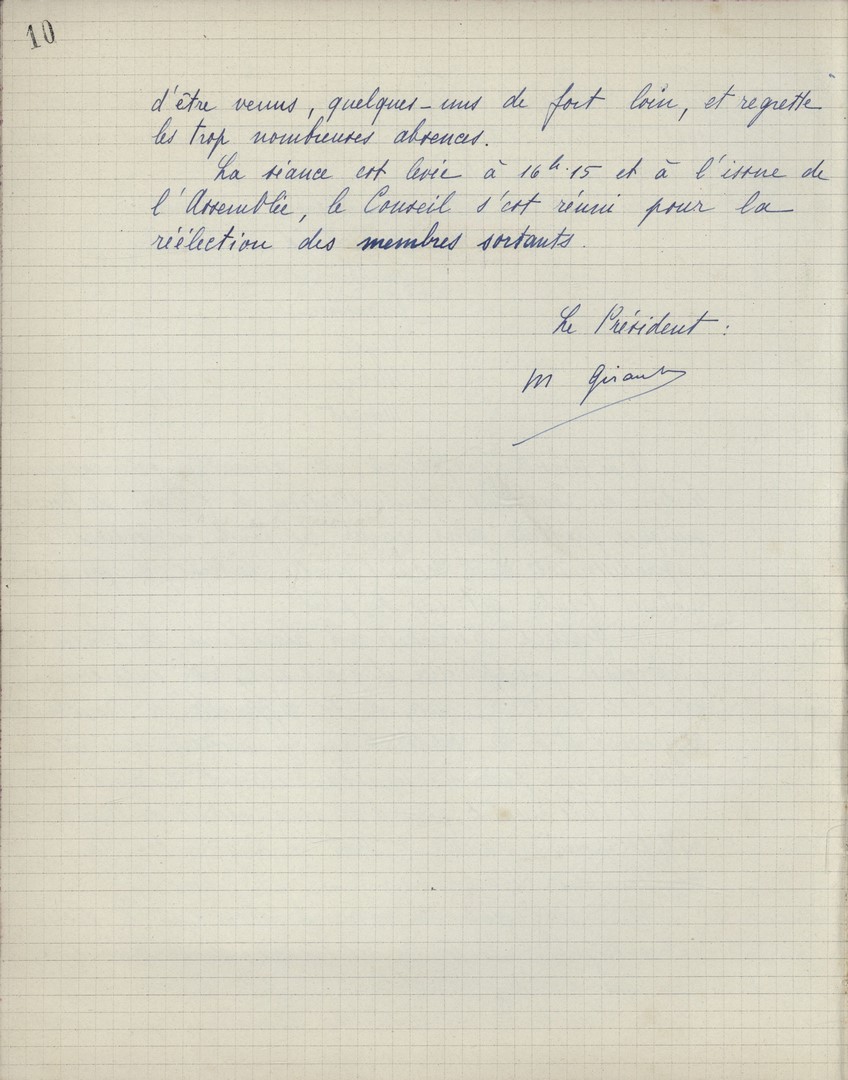 10
d'être venus, quelques-uns de fort loin, et regrette
les trop nombreuses absences.
La séance est levée à 16h.15 et à l'issue de
l'Assemblée, le Conseil s'est réuni pour la
réélection des membres sortants.
Le Président :
M Girault